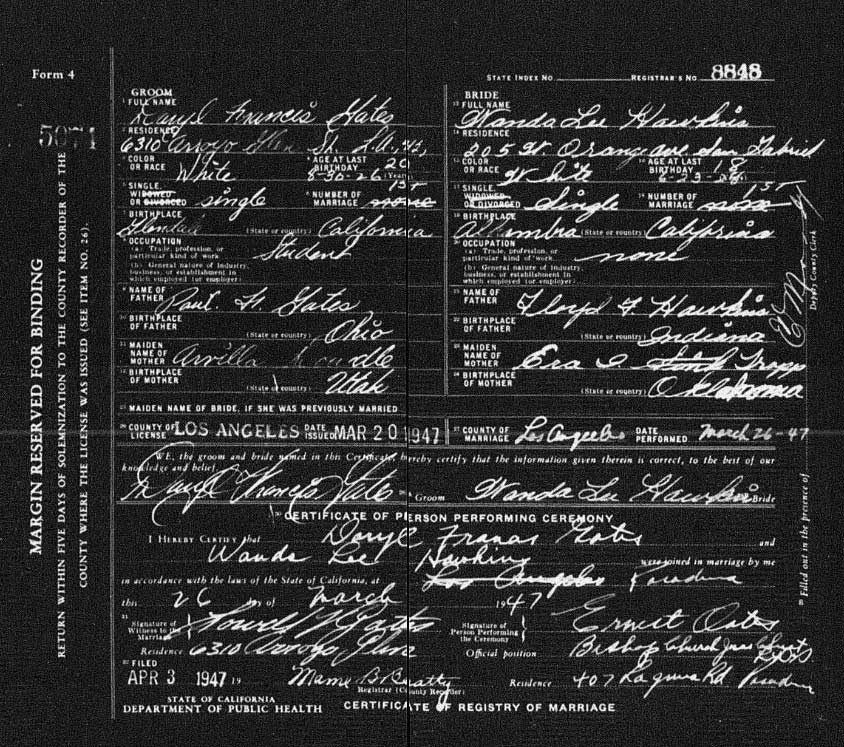 Form 4
STATE INDEX No. REGISTRAR'S No. 8848
5074
MARGIN RESERVED FOR BINDING
RETURN WITHIN FIVE DAYS OF SOLEMNIZATION TO THE COUNTY RECORDER OF THE
COUNTY WHERE THE LICENSE WAS ISSUED (SEE ITEM NO. 26).
GROOM
1 FULL NAME Daryl Francis Gates
2 RESIDENCE
6310 Arroyo Glen St. L.A. 42,
3 COLOR OR RACE White 4 AGE AT LAST BIRTHDAY 20 (Years)
8-30-26
5 SINGLE, WIDOWED OR DIVORCED single 6 NUMBER OF MARRIAGE 1st none
7 BIRTHPLACE Glendale (State or country) California
8 OCCUPATION
(a) Trade, profession, or particular kind of work Student
(b) General nature of Industry, business, or establishment in which employed (or employer)
9 NAME OF FATHER Paul. F. Gates
10 BIRTHPLACE OF FATHER (State or country) Ohio
11 MAIDEN NAME OF MOTHER Arvilla
12 BIRTHPLACE OF MOTHER (State or country) Utah
BRIDE
13 FULL NAME Wanda Lee Hawkins
14 RESIDENCE
205 W. Orange ave San Gabriel
15 COLOR OR RACE White 16 AGE AT LAST BIRTHDAY 18
17 SINGLE, WIDOWED OR DIVORCED Single 18 NUMBER OF MARRIAGE 1st none
19 BIRTHPLACE Alhambra (State or country) California
20 OCCUPATION
(a) Trade, profession, or particular kind of work none
(b) General nature of Industry, business, or establishment in which employed (or employer)
21 NAME OF FATHER Floyd F. Hawkins
22 BIRTHPLACE OF FATHER (State or country) Indiana
23 MAIDEN NAME OF MOTHER Era I. Tropp
24 BIRTHPLACE OF MOTHER (State or country) Oklahoma
25 MAIDEN NAME OF BRIDE, IF SHE WAS PREVIOUSLY MARRIED
26 COUNTY OF LICENSE LOS ANGELES DATE ISSUED MAR 20 1947
27 COUNTY OF MARRIAGE Los Angeles DATE PERFORMED March 26-47
WE, the groom and bride named in this Certificate, hereby certify that the information given therein is correct, to the best of our
knowledge and belief.
Daryl Francis Gates Groom Wanda Lee Hawkins Bride
CERTIFICATE OF PERSON PERFORMING CEREMONY
I HEREBY CERTIFY that Daryl Francis Gates and
Wanda Lee Hawkins were joined in marriage by me
in accordance with the laws of the State of California, at Los Angeles Pasadena
this 26 day of March 1947
Signature of Witness to the Marriage Lowell F. Gates
Residence 6310 Arroyo Glen
Signature of Person Performing the Ceremony Ernest Oates
Official position Bishop Church Jesus Christ
L.D.S.
FILED
APR 3 1947 19 Mame B. Beatty
Registrar (County Recorder)
Residence 407 Laguna Rd. Pasadena
STATE OF CALIFORNIA
DEPARTMENT OF PUBLIC HEALTH CERTIFICATE OF REGISTRY OF MARRIAGE
Filled out in the presence of
Deputy County Clerk